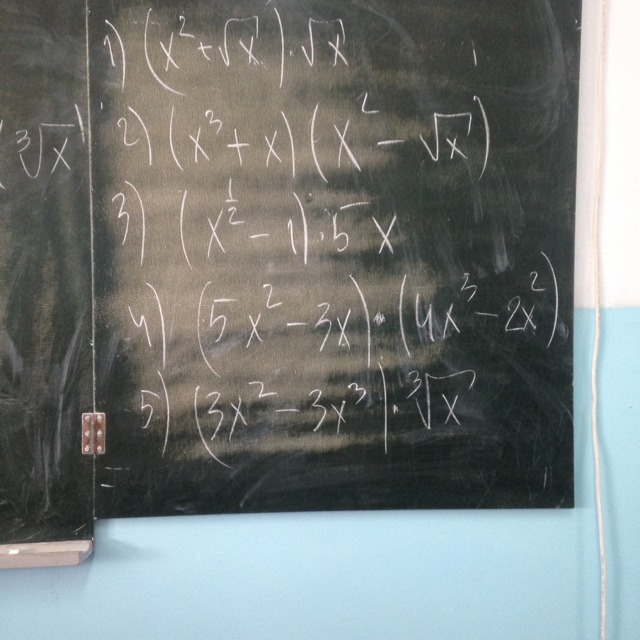 1) (x² + √x) · √x
( ∛x
2) (x³ + x)(x² − √x)
3) (x^½ − 1) · 5x
4) (5x² − 3x) · (4x³ − 2x²)
5) (3x² − 3x³) · ∛x